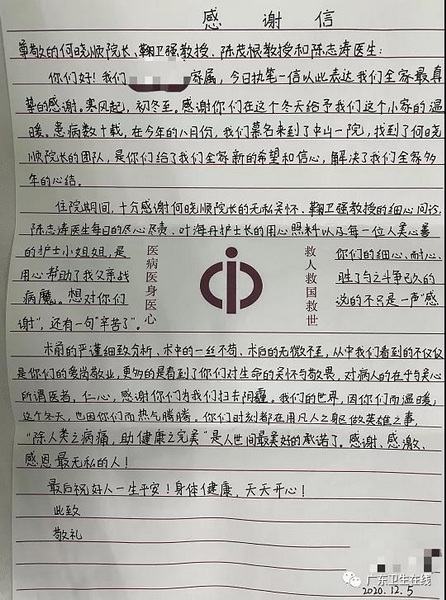 感谢信
尊敬的何晓顺院长、鞠卫强教授、陈茂根教授和陈志涛医生:
你们好!我们家属,今日执笔一信以此表达我们全家最真
挚的感谢。寒风起,初冬至。感谢你们在这个冬天给予我们这个小家的温
暖。患病数十载,在今年的八月份,我们慕名来到了中山一院,找到了何晓
顺院长的团队,是你们给了我们全家新的希望和信心,解决了我们全家多
年的心结。
住院期间,十分感谢何晓顺院长的无私关怀、鞠卫强教授的细心问诊,
陈志涛医生每日的尽心尽责,叶海丹护士长的用心照料以及每一位人美心善
的护士小姐姐,是
你们的细心、耐心、
用心帮助了我父亲战
胜了与之斗争已久的
病魔。想对你们
说的不只是一声“感
谢”,还有一句“辛苦了”。
医病医身医心
救人救国救世
术前的严谨细致分析,术中的一丝不苟、术后的无微不至,从中我们看到的不仅仅
是你们的爱岗敬业,更多的是看到了你们对生命的关怀与敬畏,对病人的在乎与关心
所谓医者,仁心,感谢你们为我们扫去阴霾。我们的世界,因你们而温暖;
这个冬天,也因你们而热气腾腾。你们时刻都在用凡人之躯做英雄之事,
“除人类之病痛,助健康之完美”是人世间最美好的承诺了。感谢、感激、
感恩最无私的人!
最后祝好人一生平安!身体健康,天天开心!
此致
敬礼
2020.12.5
广东卫生在线